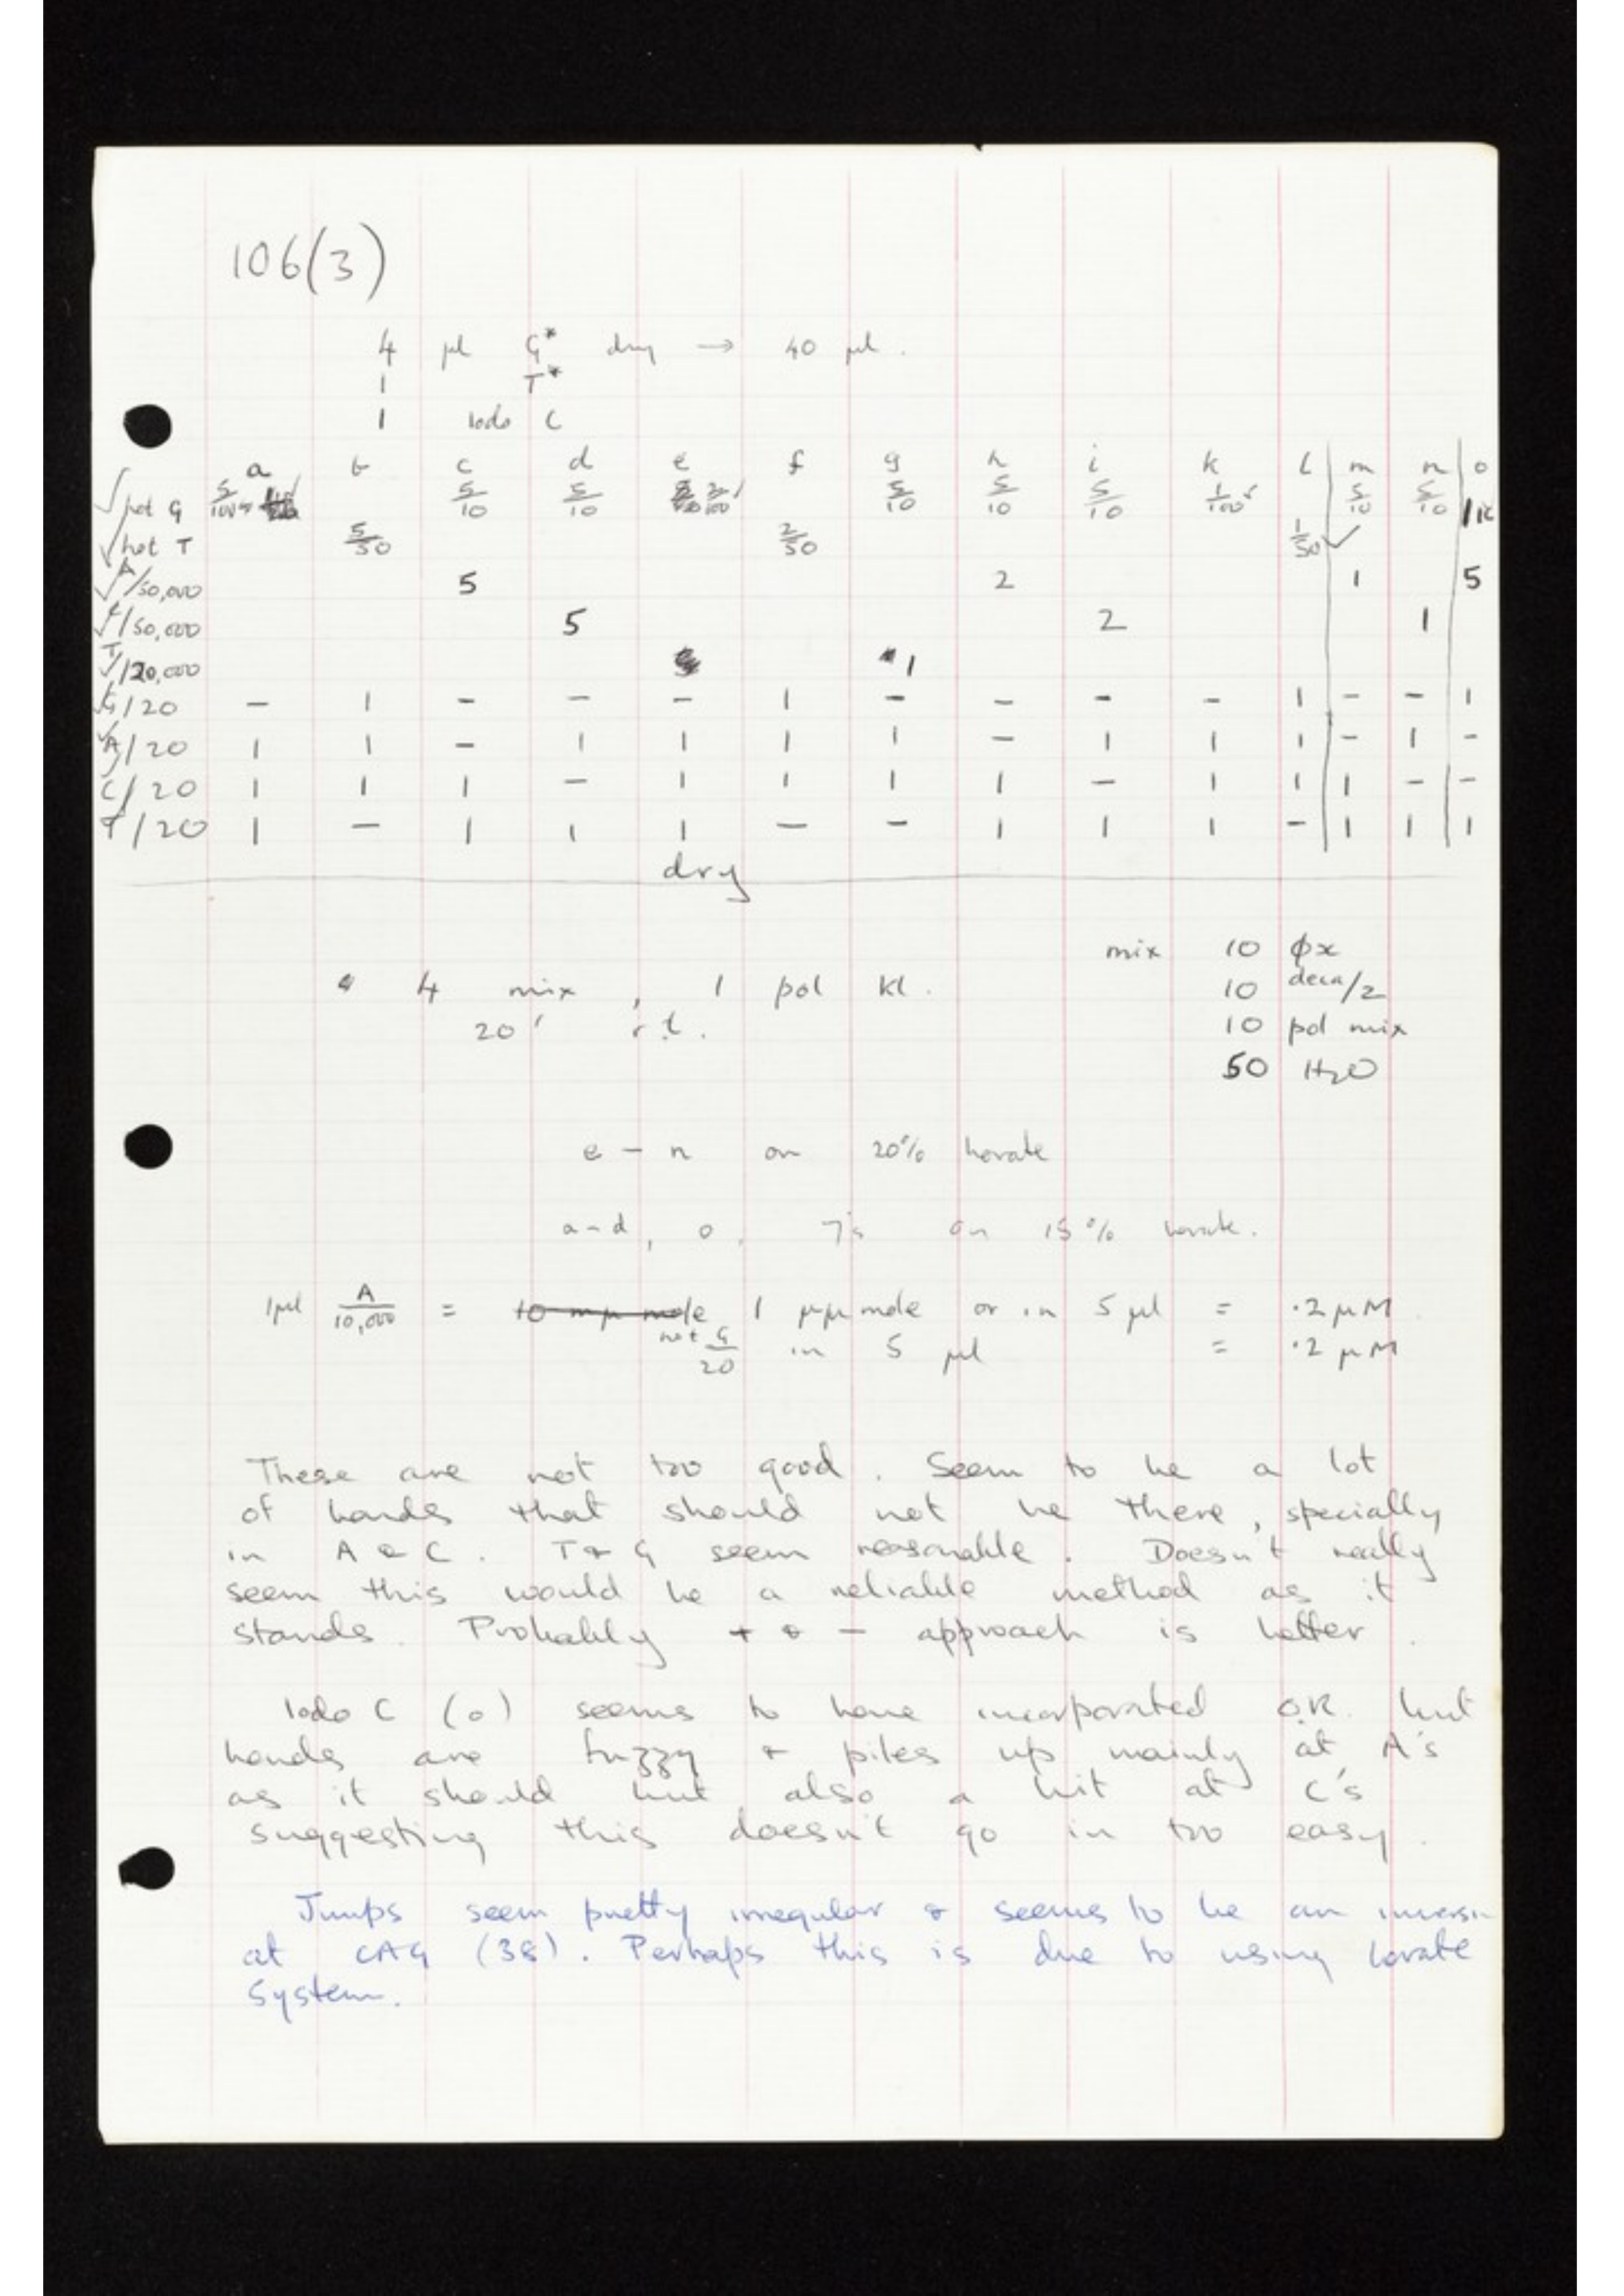 106(3)
4 µl G* dry → 40 µl.
1 T*
1 Iodo C
a b c d e f g h i k l m n o
√ hot G 5/100 5/10 5/10 2/100 5/10 5/10 5/10 1/100 5/10 5/10
√ hot T 5/50 2/50 1/50 √
√ A/50,000 5 2 1 5
√ C/50,000 5 2 1
√ T/20,000 1
√ G/20 – 1 – – – 1 – – – – 1 – – 1
√ A/20 1 1 – 1 1 1 1 – 1 1 1 – 1 –
√ C/20 1 1 1 – 1 1 1 1 – 1 1 1 – –
T/20 1 – 1 1 1 – – 1 1 1 – 1 1 1
dry
mix 10 φx
4 mix, 1 pol Kl.
10 deca/2
20' r.t.
10 pol mix
50 H2O
e – n on 20% borate
a-d, o, 7's on 15% borate.
1µl A/10,000 = 10 mµ mole 1 µµ mole or in 5 µl = .2 µM
hot G/20 in 5 µl = .2 µM
These are not too good. Seem to be a lot
of bands that should not be there, specially
in A & C. T & G seem reasonable. Doesn't really
seem this would be a reliable method as it
stands. Probably + & – approach is better.
Iodo C (o) seems to have incorporated O.K. but
bands are fuzzy & piles up mainly at A's
as it should but also a bit at C's
suggesting this doesn't go in too easy.
Jumps seem pretty irregular & seems to be an inversn
at CAG (38). Perhaps this is due to using borate
System.